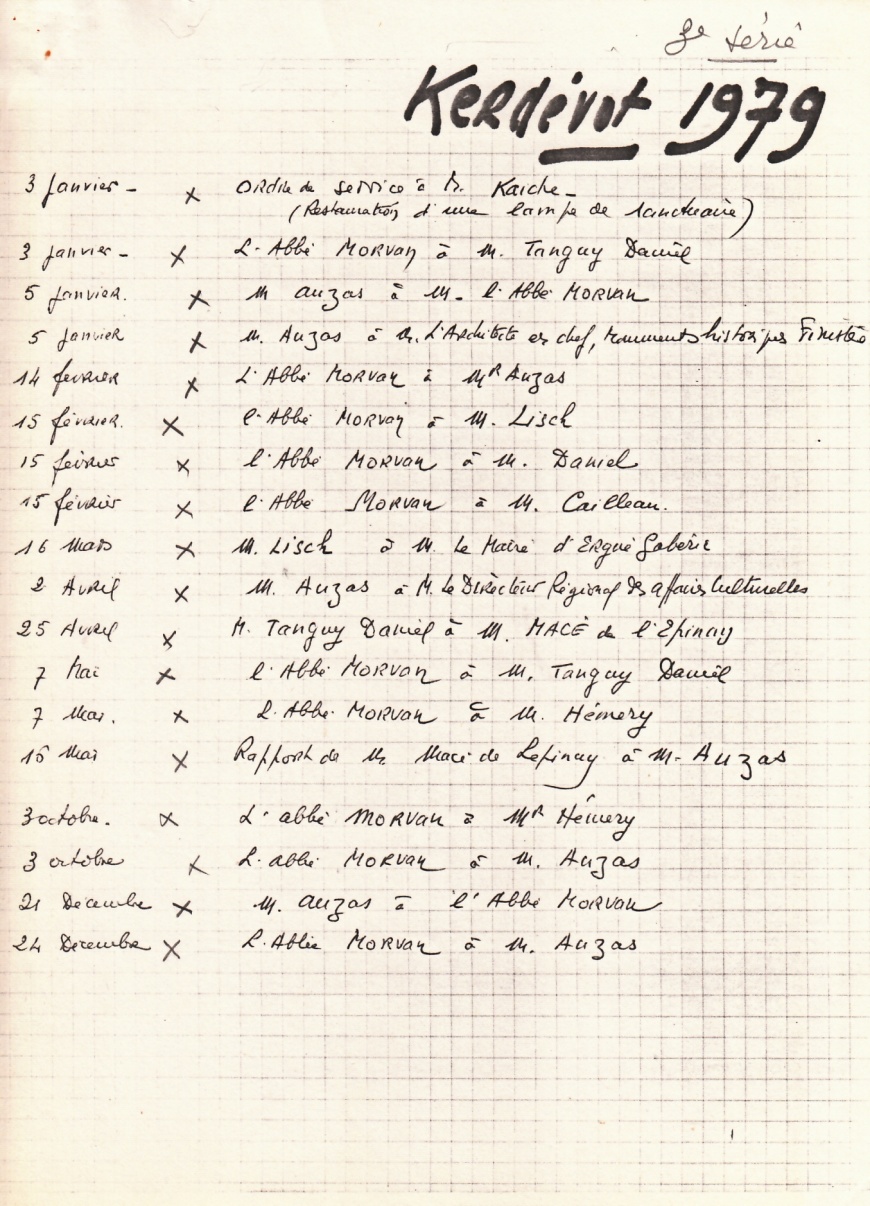 3e série
Kerdévot 1979
3 Janvier - x Ordre de service à M. Kaiche -
(Restauration d'une lampe de sanctuaire)
3 janvier - x L'Abbé MORVAN à M. Tanguy Daniel
5 Janvier. x M Auzas à M. l'Abbé MORVAN
5 Janvier x M. Auzas à M. L'Architecte en chef, Monuments historiques Finistère
14 février x L'Abbé MORVAN à MR Auzas
15 février. x l'Abbé MORVAN à M. Lisch
15 février x l'Abbé MORVAN à M. Daniel
15 février x l'Abbé MORVAN à M. Cailleau.
16 Mars x M. Lisch à M. Le Maire d'Ergué Gabéric
2 Avril x M. Auzas à M. Le Directeur Régional des affaires Culturelles
25 Avril x M. Tanguy Daniel à M. MACÉ de l'Epinay
7 Mai x l'Abbé MORVAN à M. Tanguy Daniel
7 Mai. x L'Abbé MORVAN à M. Hémery
15 Mai x Rapport de M. Macé de Lepinay à M. Auzas
3 octobre. x L'abbé MORVAN à MR Hémery
3 octobre x L'abbé MORVAN à M. Auzas
21 Décembre x M. Auzas à l'Abbé MORVAN
24 Décembre x L'Abbé MORVAN à M. Auzas